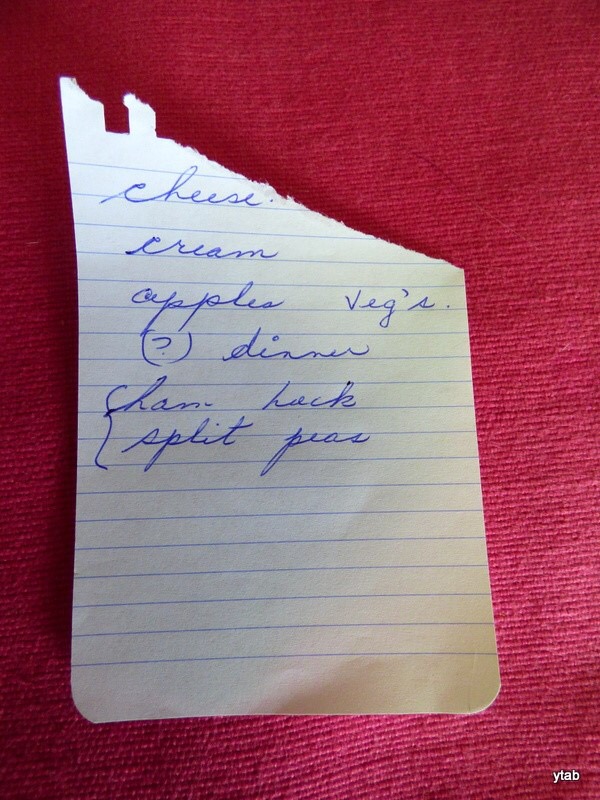 cheese.
cream
apples veg's.
(?) dinner
ham hock
split peas
ytab